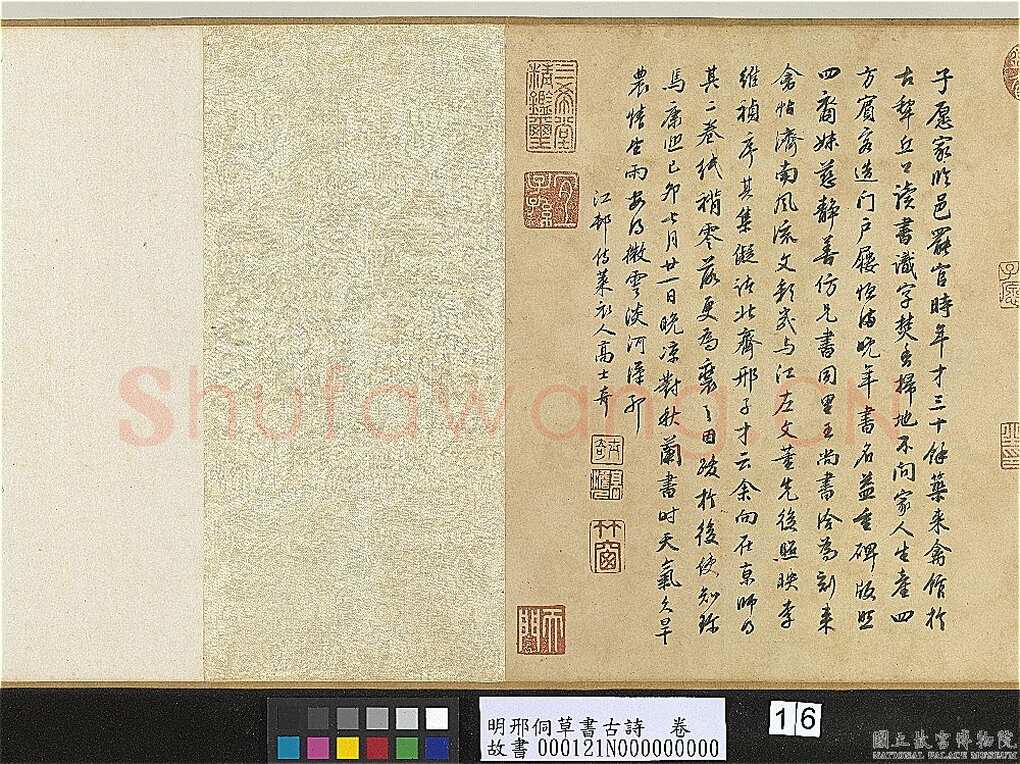 子愿家臨邑罷官時年才三十餘築來禽館於
古犂丘上讀書識字焚香掃地不問家人生產四
方賓客造門戶屨恒滿晚年書名益重碑版照
四裔妹慈靜善仿兄書同里王尚書洽為刻來
禽帖濟南風流文彩與江左文董先後照映李
維禎序其集儗諸北齊邢子才云余向在京師得
其二卷紙稍零落更為裝之因跋於後使知珍
焉康熙己卯七月廿一日晚涼對秋蘭書時天氣久旱
農情望雨安得微雲淡河漢耶
江邨傖萊衣人高士奇
士奇
竹窗
三希堂精鑑璽
宜子孫
Shufawang.CN
明邢侗草書古詩 卷
故書 000121N000000000
16
國立故宮博物院
NATIONAL PALACE MUSEUM